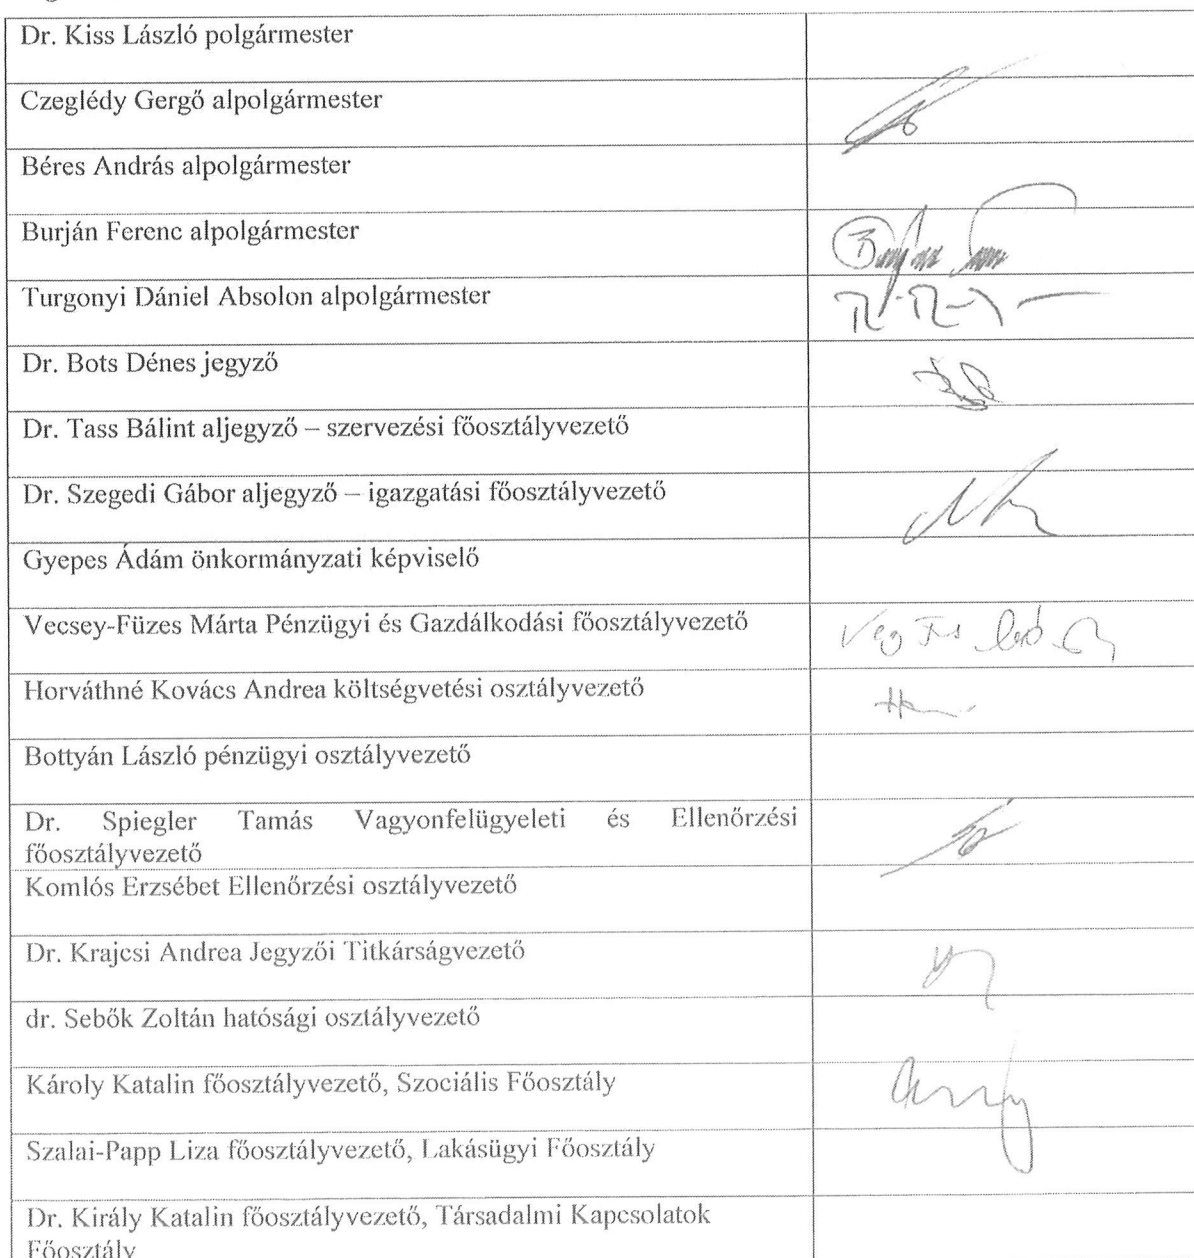 Dr. Kiss László polgármester
Czeglédy Gergő alpolgármester
Béres András alpolgármester
Burján Ferenc alpolgármester
Turgonyi Dániel Absolon alpolgármester
Dr. Bots Dénes jegyző
Dr. Tass Bálint aljegyző – szervezési főosztályvezető
Dr. Szegedi Gábor aljegyző – igazgatási főosztályvezető
Gyepes Ádám önkormányzati képviselő
Vecsey-Füzes Márta Pénzügyi és Gazdálkodási főosztályvezető
Horváthné Kovács Andrea költségvetési osztályvezető
Bottyán László pénzügyi osztályvezető
Dr. Spiegler Tamás Vagyonfelügyeleti és Ellenőrzési
főosztályvezető
Komlós Erzsébet Ellenőrzési osztályvezető
Dr. Krajcsi Andrea Jegyzői Titkárságvezető
dr. Sebők Zoltán hatósági osztályvezető
Károly Katalin főosztályvezető, Szociális Főosztály
Szalai-Papp Liza főosztályvezető, Lakásügyi Főosztály
Dr. Király Katalin főosztályvezető, Társadalmi Kapcsolatok
Főosztály